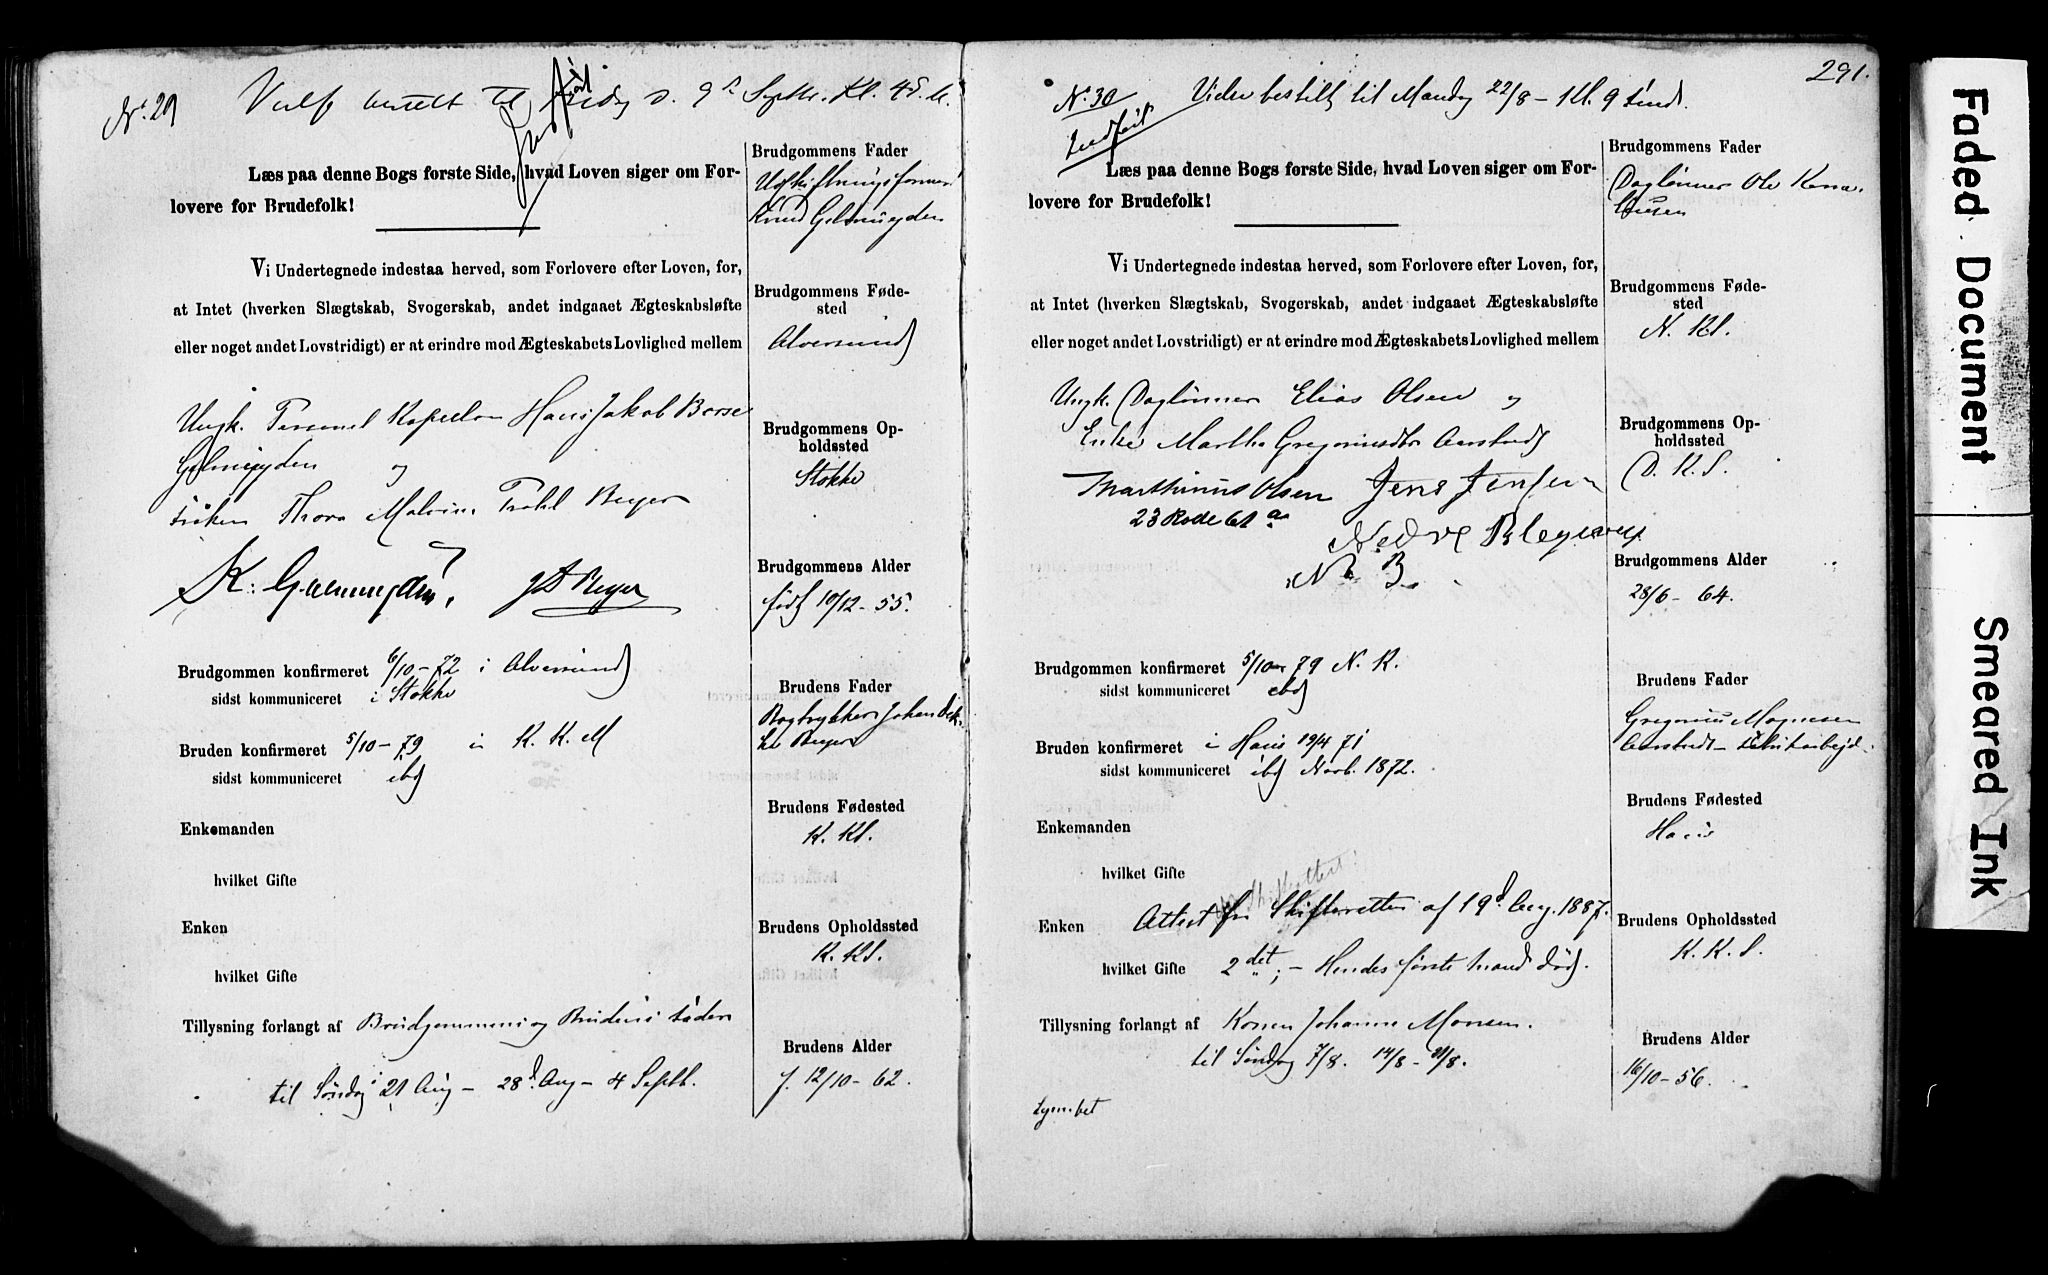 Nr. 29
Vielse bestilt til Fredag d. 9de Septbr. Kl. 4
Indført
Læs paa denne Bogs første Side, hvad Loven siger om For-
lovere for Brudefolk!
Vi Undertegnede indestaa herved, som Forlovere efter Loven, for,
at Intet (hverken Slægtskab, Svogerskab, andet indgaaet Ægteskabsløfte
eller noget andet Lovstridigt) er at erindre mod Ægteskabets Lovlighed mellem
Ungk. Personel Kapellan Hans Jakob Børse
Gjelmuyden og
Frøken Thora Malvina Beyer
K. Gjelmuyden, Beyer
Brudgommen konfirmeret 6/10-72 i Alversund
sidst kommuniceret i Stokke
Bruden konfirmeret 5/10-79 i K. K. M
sidst kommuniceret ibd
Enkemanden
hvilket Gifte
Enken
hvilket Gifte
Tillysning forlangt af Brudgommens og Brudens Fader
til Søndag 21 Aug - 28d Aug - 4 Septb.
Brudgommens Fader
Udskiftningsforman
Knud Gjelmuyden
Brudgommens Føde-
sted
Alversund
Brudgommens Op-
holdssted
Stokke
Brudgommens Alder
født 10/12-55.
Brudens Fader
Bogtrykker Johan
Beyer
Brudens Fødested
K. Kl.
Brudens Opholdssted
K. Kl.
Brudens Alder
f. 12/10-62.
291.
N. 30
Indført
Vielse bestilt til Mandag 22/8 - Kl. 9
Læs paa denne Bogs første Side, hvad Loven siger om For-
lovere for Brudefolk!
Vi Undertegnede indestaa herved, som Forlovere efter Loven, for,
at Intet (hverken Slægtskab, Svogerskab, andet indgaaet Ægteskabsløfte
eller noget andet Lovstridigt) er at erindre mod Ægteskabets Lovlighed mellem
Ungk. Daglønner Elias Olsen og
Enke Martha Gregoriusdtr Aarstad
Marthinius Olsen Jens Jensen
23 Rode 61 a
Nedre Blegevej
N B.
Brudgommen konfirmeret 5/10 79 N. K.
sidst kommuniceret ibd
Bruden konfirmeret i Haus 19/4 71
sidst kommuniceret ibd Novb. 1872.
Enkemanden
hvilket Gifte
Enken Attest fra Skifteretten af 19d Aug. 1887.
hvilket Gifte 2det; - Hendes første Mand død.
Tillysning forlangt af Konen Johanne Monsen.
til Søndag 7/8. 14/8 - 21/8.
Brudgommens Fader
Daglønner Ole
Brudgommens Føde-
sted
N. Kl.
Brudgommens Op-
holdssted
D. K. S.
Brudgommens Alder
28/6-64.
Brudens Fader
Gregorius Magnesen
Aarstad -
Brudens Fødested
Haus
Brudens Opholdssted
K. K. S.
Brudens Alder
16/10-56.
Faded Document
Smeared Ink